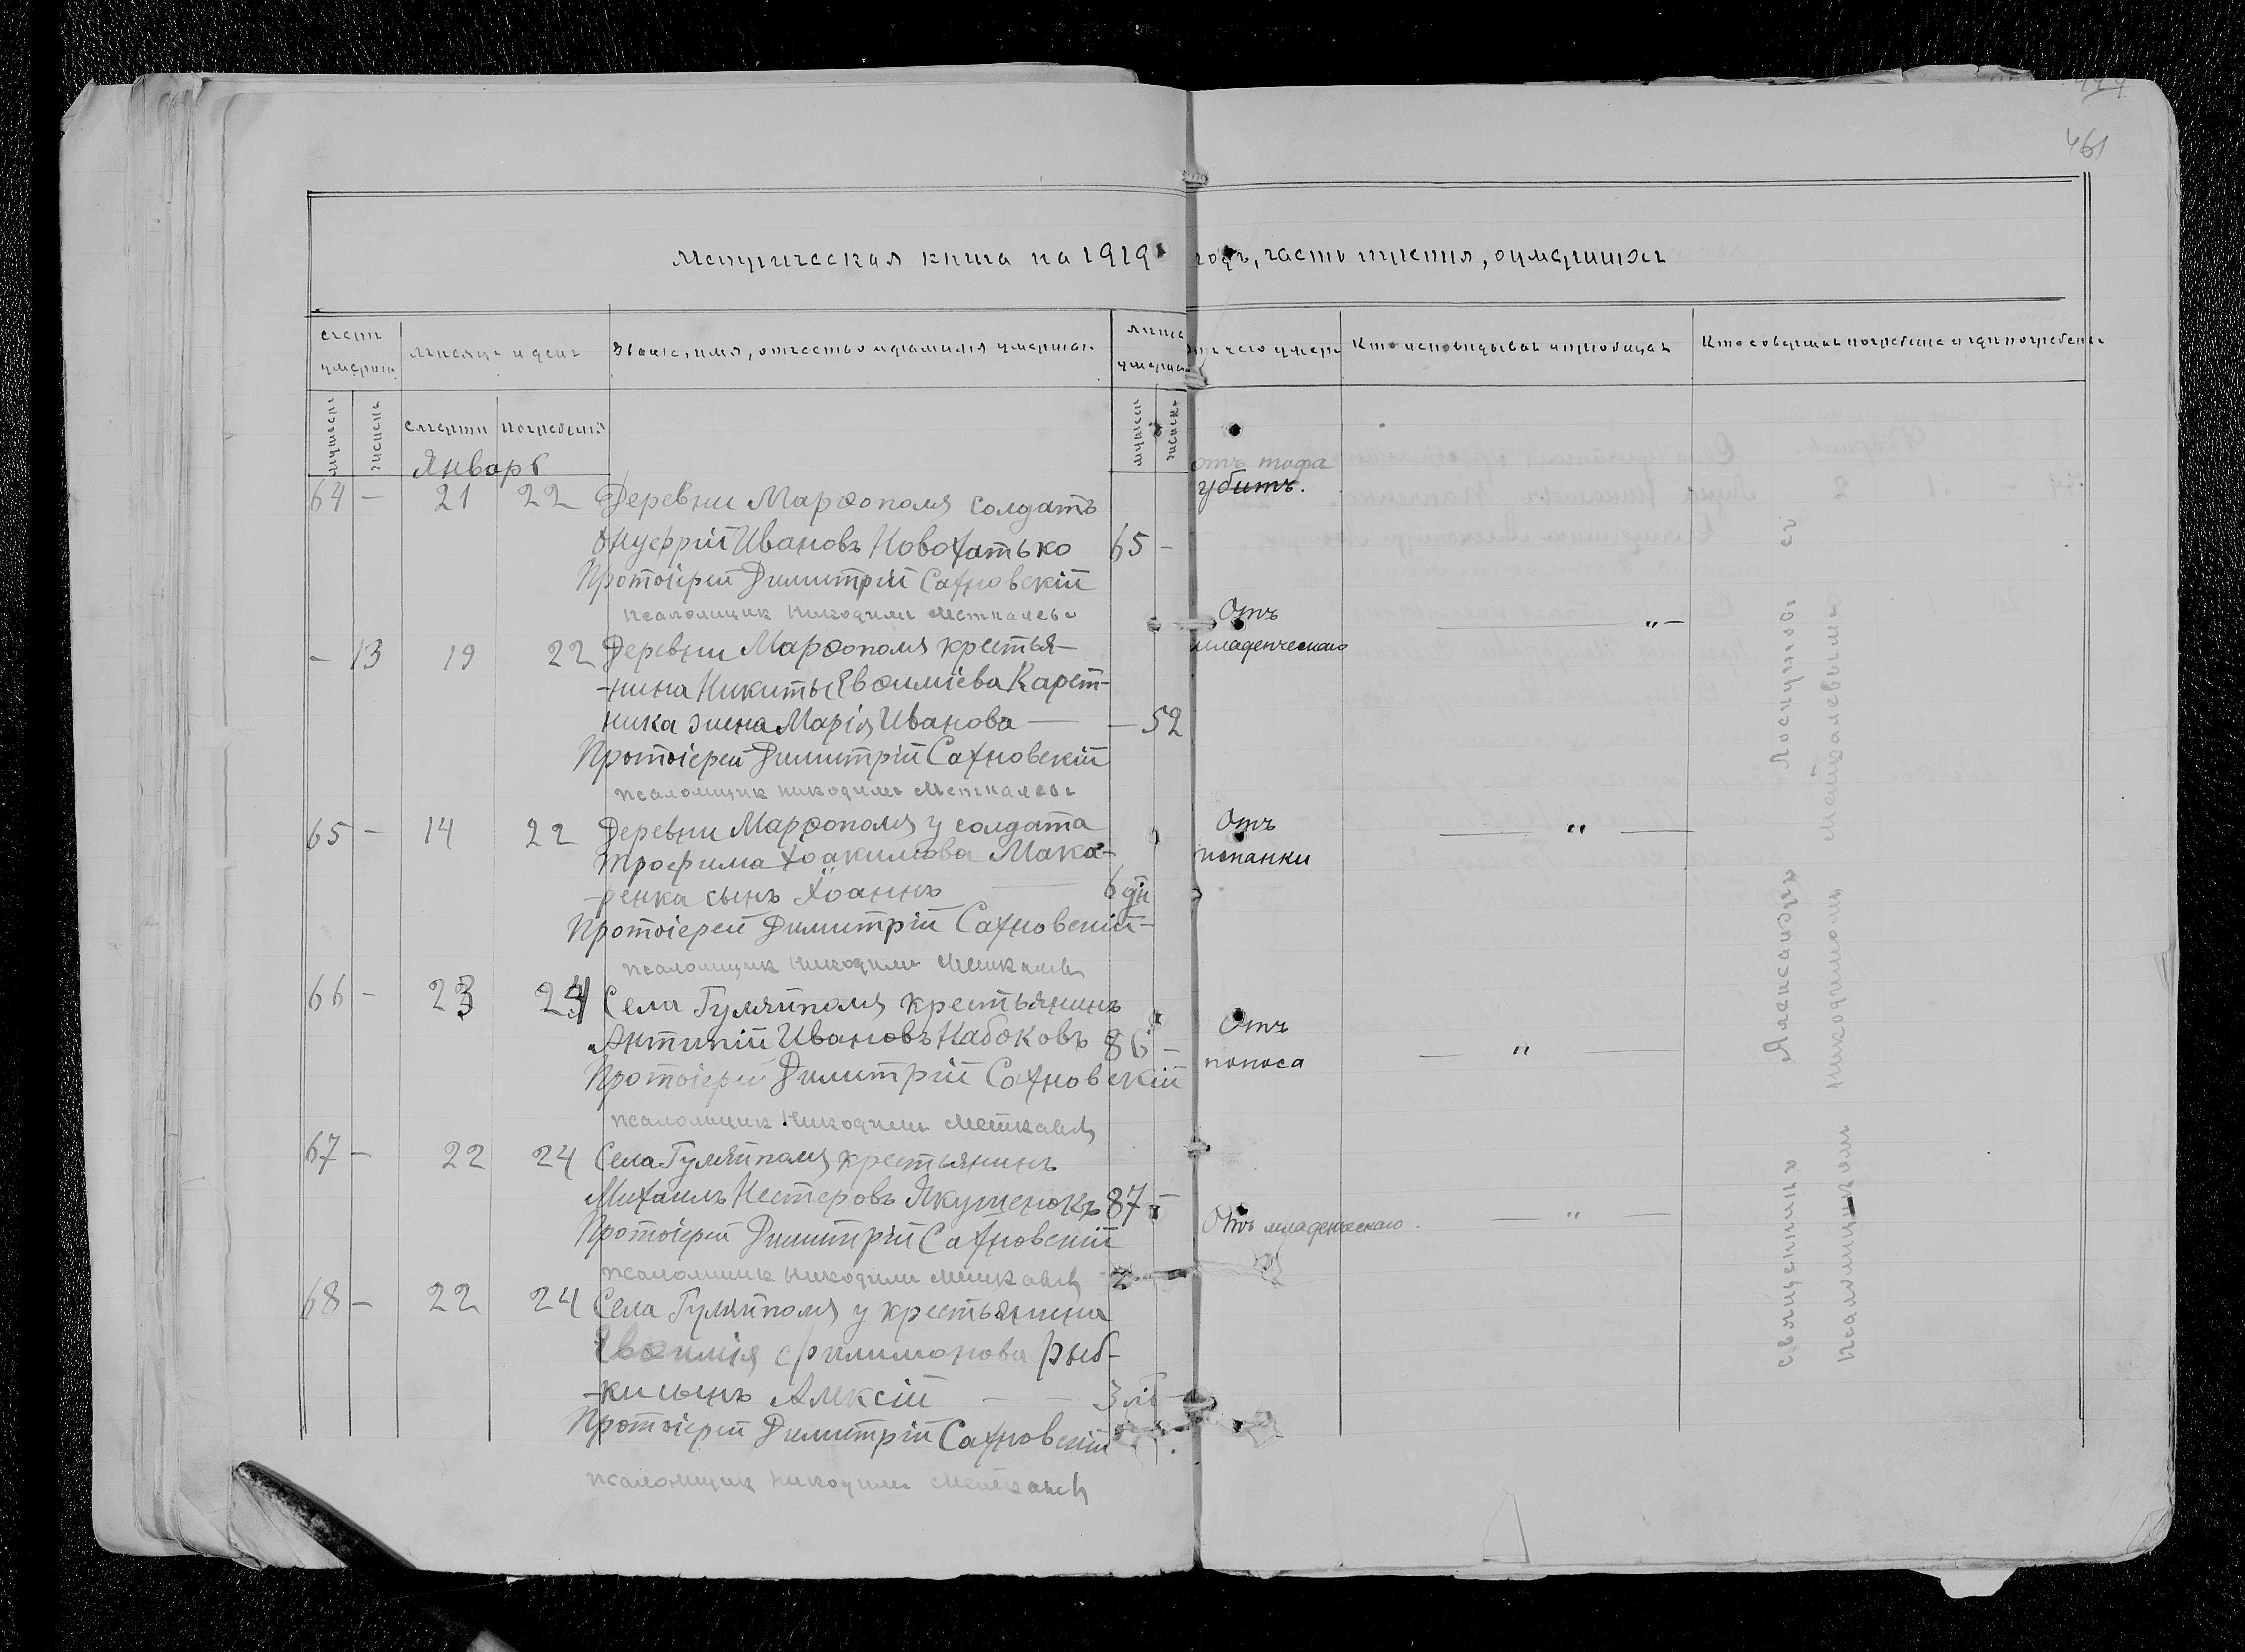 461
Метрическая книга на 1919 годъ, часть третья, о умершихъ
счетъ умерших
мѣсяцъ и день
Званіе, имя, отчество и фамилія умершаго
лѣта умершаго
отъ чего умеръ
Кто исповѣдывалъ и пріобщалъ
Кто совершалъ погребеніе и гдѣ погребены
мужеск
женскъ
смерти
погребенія
мужеск
женскъ
Январь
отъ тифа
убитъ.
64 - 21 22 Деревни Марѳополя солдатъ
Онуфрій Ивановъ Новохатько 65 -
Протоіерей Димитрій Сахновскій
псаломщик Никодимъ
- 13 19 22 Деревни Марѳополя крестья-
-нина Никиты Евѳиміева Карет-
ника жена Марія Иванова - 52
Протоіерей Димитрій Сахновскій
псаломщик Никодимъ
Отъ
младенческаго
65 - 14 22 Деревни Марѳополя у солдата
Трофима Іоакимова Мака-
-ренка сынъ Іоаннъ 6 дн
Протоіерей Димитрій Сахновскій
псаломщик Никодимъ
Отъ
испанки
66 - 23 24 Села Гуляйполя крестьянинъ
Антипій Ивановъ Набоковъ 86 -
Протоіерей Димитрій Сахновскій
псаломщик Никодимъ
Отъ
поноса
67 - 22 24 Села Гуляйполя крестьянинъ
Михаилъ Нестеровъ Якушенокъ 87 -
Протоіерей Димитрій Сахновскій
псаломщик Никодимъ
Отъ младенческаго.
68 - 22 24 Села Гуляйполя у крестьянина
Евѳимія Филимонова Рыб-
-ки сынъ Алексій 3 лѣ
Протоіерей Димитрій Сахновскій
псаломщик Никодимъ
Священникъ Александръ Лоскутовъ съ
псаломщикомъ Никодимомъ